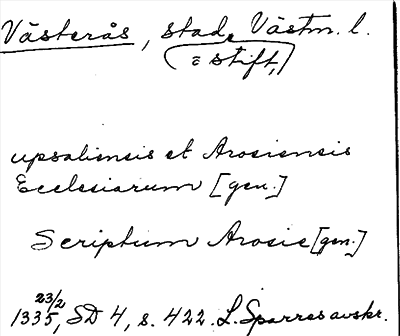 Västerås, stad, Västm. l.
(= stift,)
upsaliensis et Arosiensis
Ecclesiarum [gen.]
Scriptum Arosie [gen.]
23/2
1335, SD 4, s. 422. L. Sparres avskr.